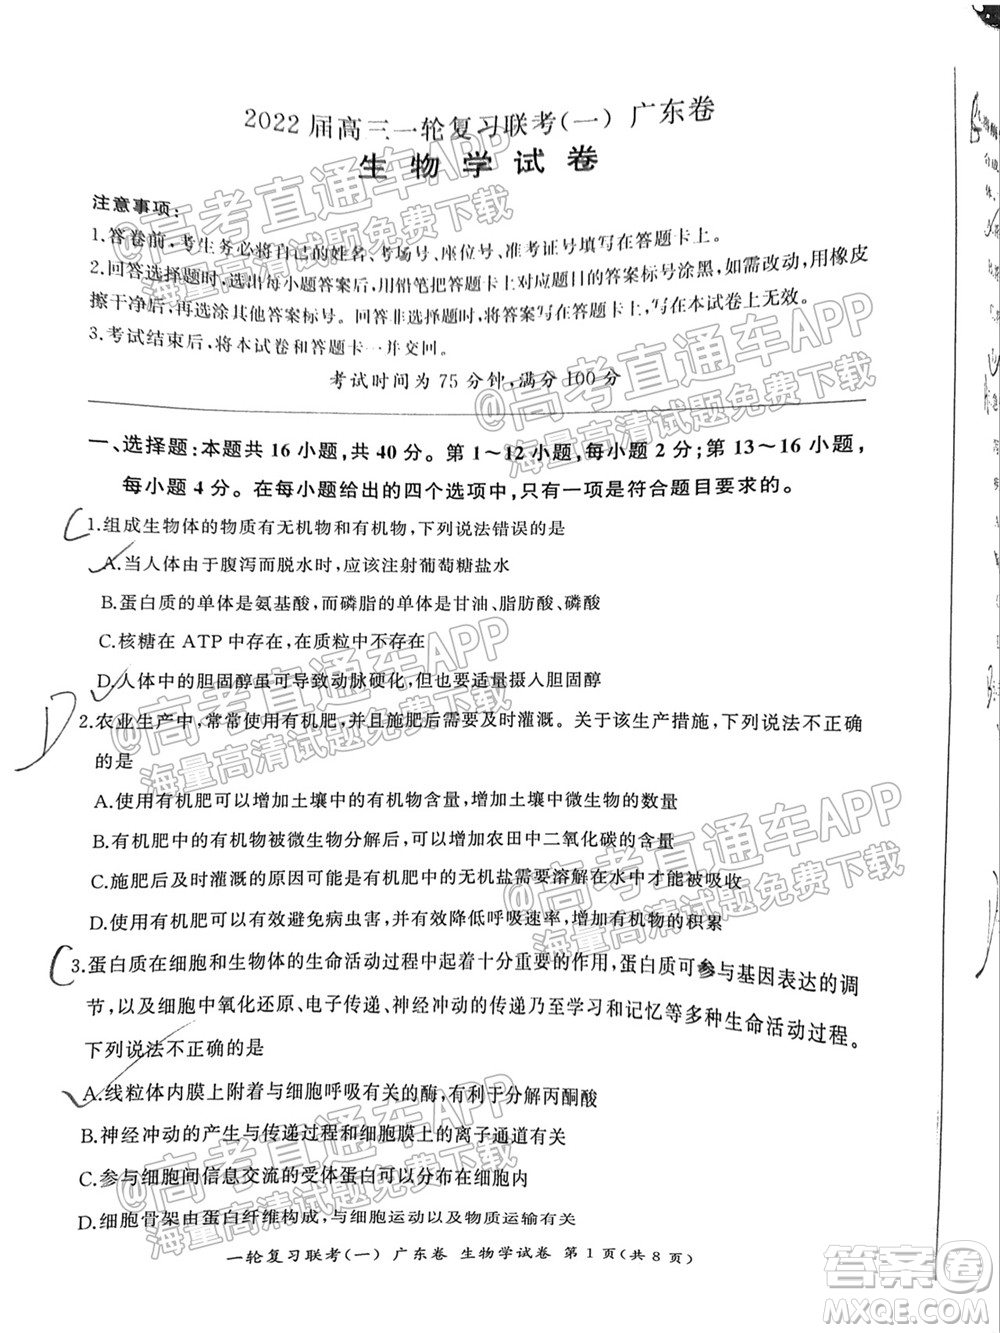 2022届高三一轮复习联考(一) 广东卷
生物学试卷
注意事项:
1.答卷前,考生务必将自己的姓名、考场号、座位号、准考证号填写在答题卡上。
2.回答选择题时,选出每小题答案后,用铅笔把答题卡上对应题目的答案标号涂黑,如需改动,用橡皮
擦干净后,再选涂其他答案标号。回答非选择题时,将答案写在答题卡上。写在本试卷上无效。
3.考试结束后,将本试卷和答题卡一并交回。
考试时间为75分钟,满分100分
一、选择题:本题共16小题,共40分。第1~12小题,每小题2分;第13~16小题,
每小题4分。在每小题给出的四个选项中,只有一项是符合题目要求的。
C 1.组成生物体的物质有无机物和有机物,下列说法错误的是
A.当人体由于腹泻而脱水时,应该注射葡萄糖盐水
B.蛋白质的单体是氨基酸,而磷脂的单体是甘油、脂肪酸、磷酸
C.核糖在ATP中存在,在质粒中不存在
D.人体中的胆固醇虽可导致动脉硬化,但也要适量摄入胆固醇
D 2.农业生产中,常常使用有机肥,并且施肥后需要及时灌溉。关于该生产措施,下列说法不正确
的是
A.使用有机肥可以增加土壤中的有机物含量,增加土壤中微生物的数量
B.有机肥中的有机物被微生物分解后,可以增加农田中二氧化碳的含量
C.施肥后及时灌溉的原因可能是有机肥中的无机盐需要溶解在水中才能被吸收
D.使用有机肥可以有效避免病虫害,并有效降低呼吸速率,增加有机物的积累
C 3.蛋白质在细胞和生物体的生命活动过程中起着十分重要的作用,蛋白质可参与基因表达的调
节,以及细胞中氧化还原、电子传递、神经冲动的传递乃至学习和记忆等多种生命活动过程。
下列说法不正确的是
A.线粒体内膜上附着与细胞呼吸有关的酶,有利于分解丙酮酸
B.神经冲动的产生与传递过程和细胞膜上的离子通道有关
C.参与细胞间信息交流的受体蛋白可以分布在细胞内
D.细胞骨架由蛋白纤维构成,与细胞运动以及物质运输有关
一轮复习联考(一) 广东卷 生物学试卷 第1页(共8页)
@高考直通车APP
海量高清试题免费下载
@高考直通车APP
海量高清试题免费下载
@高考直通车APP
海量高清试题免费下载
@高考直通车APP
海量高清试题免费下载
@高考直通车APP
海量高清试题免费下载
答案卷
MXQE.COM